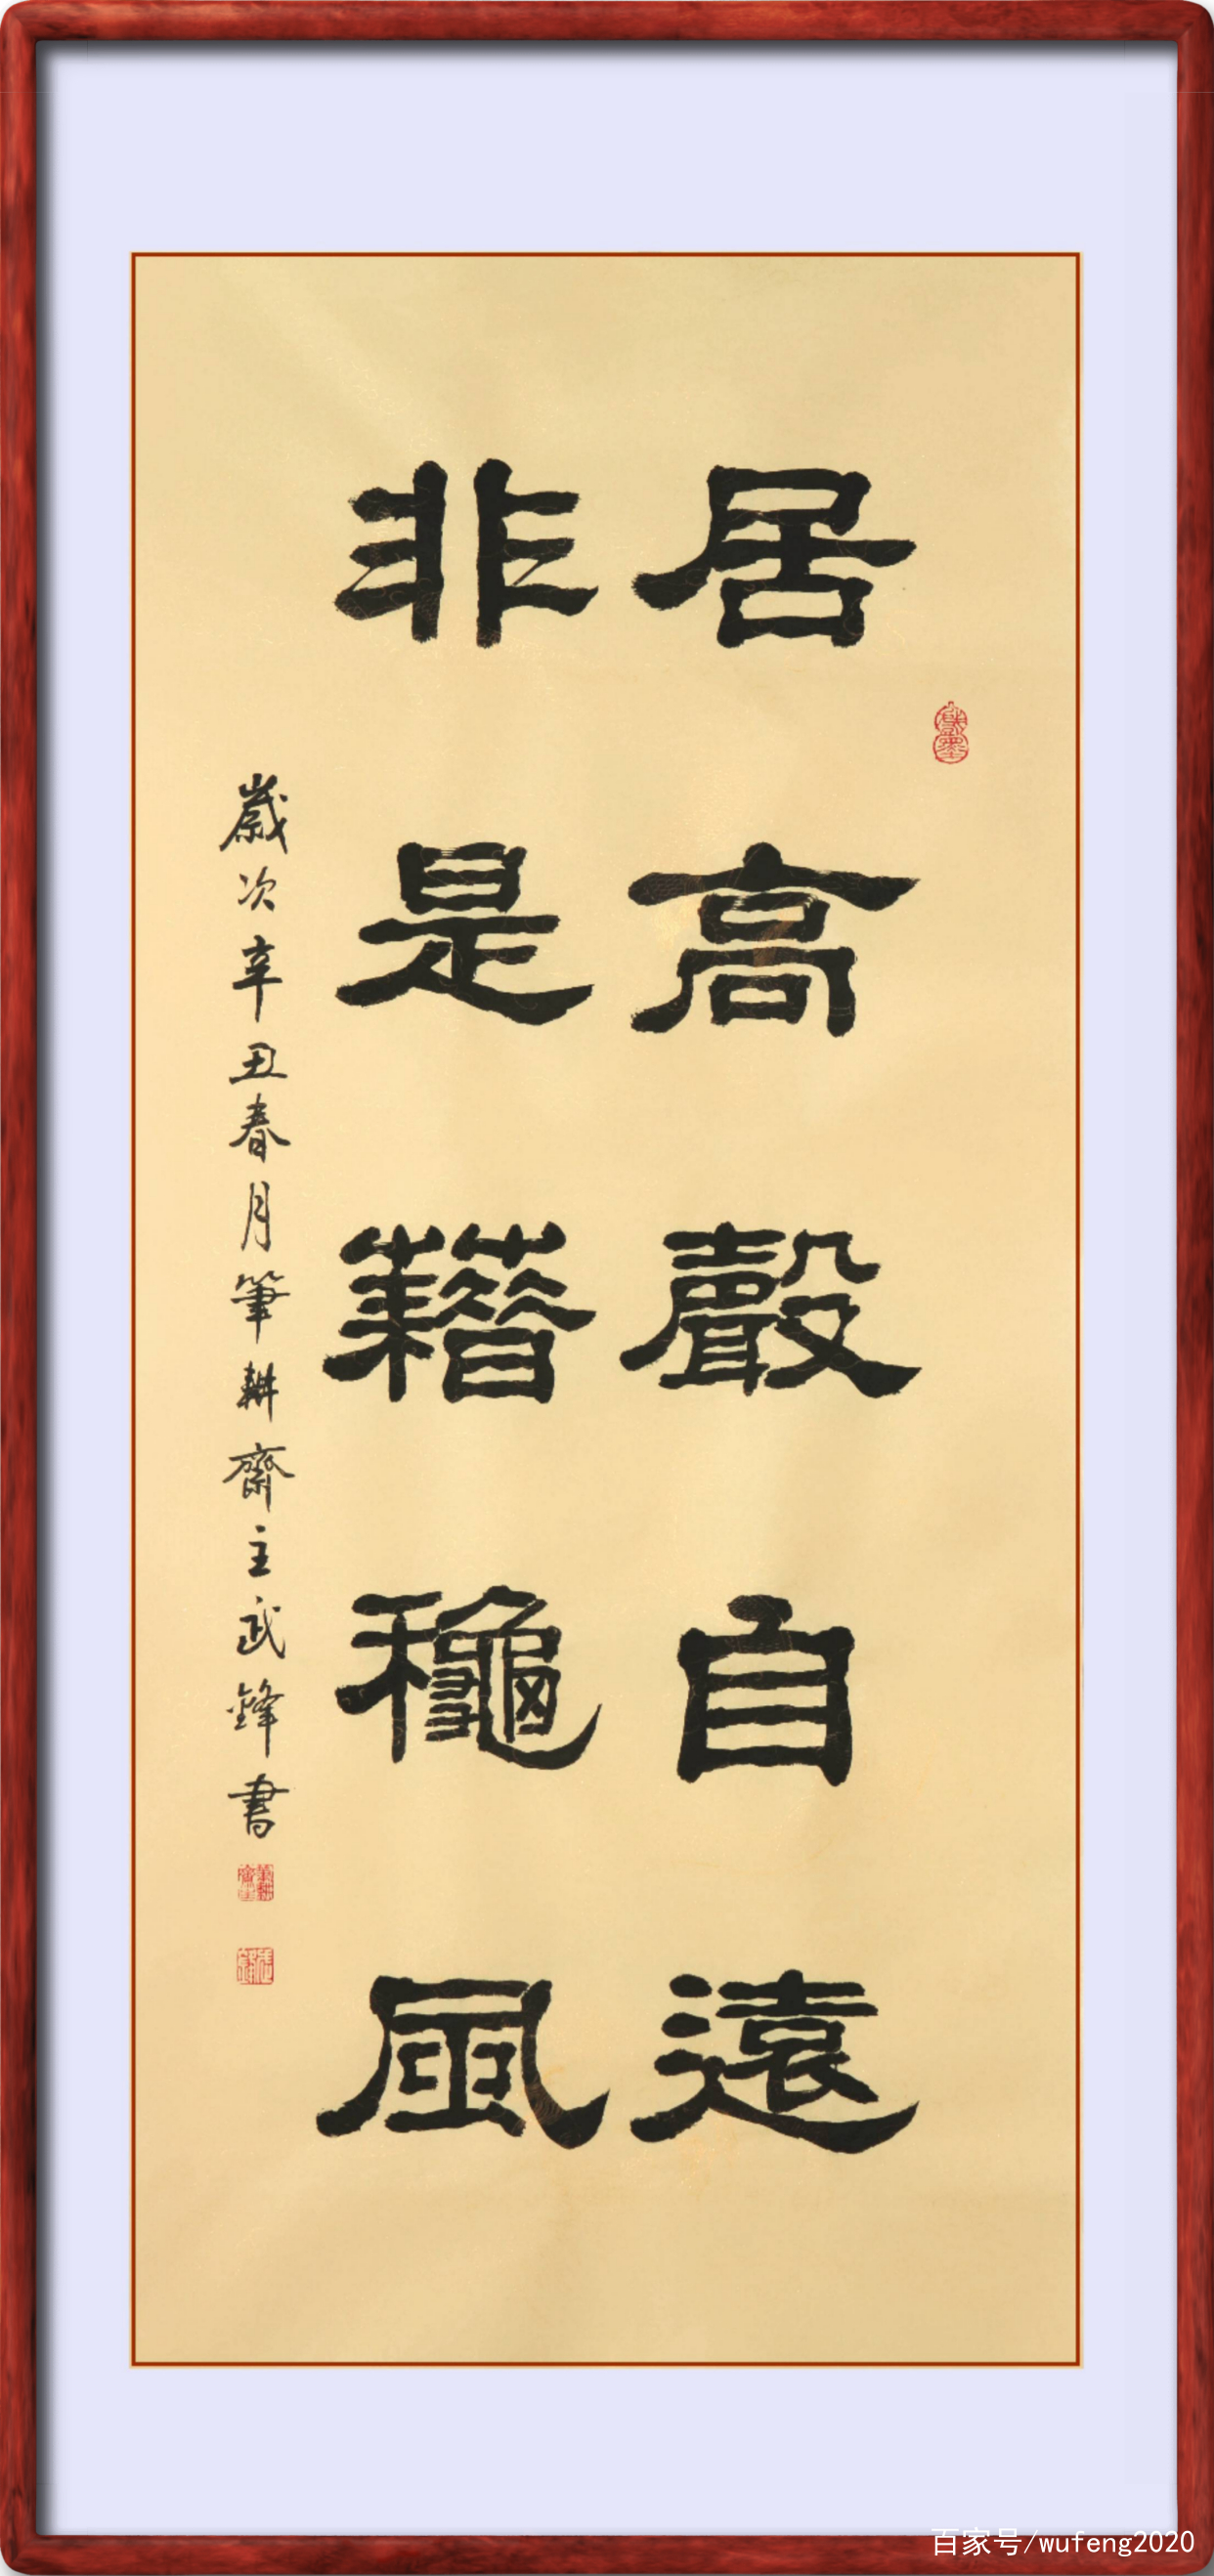 居高聲自遠
非是藉龝風
歲次辛丑春月筆耕齋主武鋒書
百家号/wufeng2020